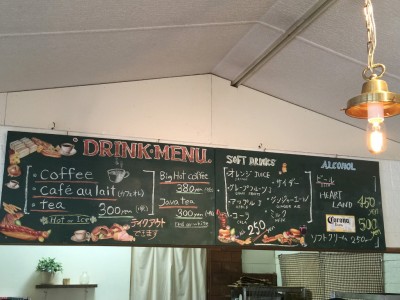 DRINK・MENU
・coffee
・café au lait (カフェオレ)
・tea
300yen (+税)
Hot or Ice
テイクアウト
できます
Big Hot coffee
380yen (+税)
Java tea
300yen (+税)
SOFT DRINKS
・オレンジ JUICE
・サイダー
・グレープフルーツ
・アップル
・ジンジャーエール
・コーラ
・ミルク
250
ALCOHOL
ビール
HEART
LAND
450
Corona
500
ソフトクリーム 250